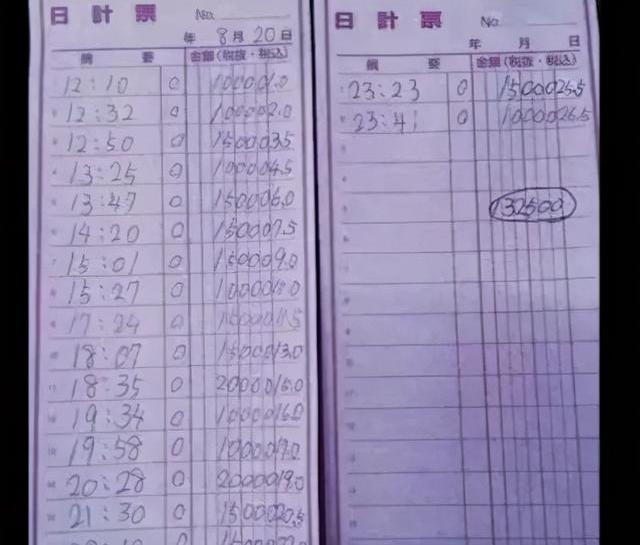 日計票 No.
年 8月 20日
摘要 金額(税抜・税込)
12:10 0 10000 1.0
12:32 0 10000 2.0
12:50 0 15000 3.5
13:25 0 10000 4.5
13:47 0 15000 6.0
14:20 0 15000 7.5
15:01 0 15000 9.0
15:27 0 10000 10.0
17:24 0 15000 11.5
18:07 0 15000 13.0
18:35 0 20000 15.0
19:34 0 10000 16.0
19:58 0 10000 17.0
20:28 0 20000 19.0
21:30 0 15000 20.5
日計票 No.
年 月 日
摘要 金額(税抜・税込)
23:23 0 15000 25.5
23:41 0 10000 26.5
132500